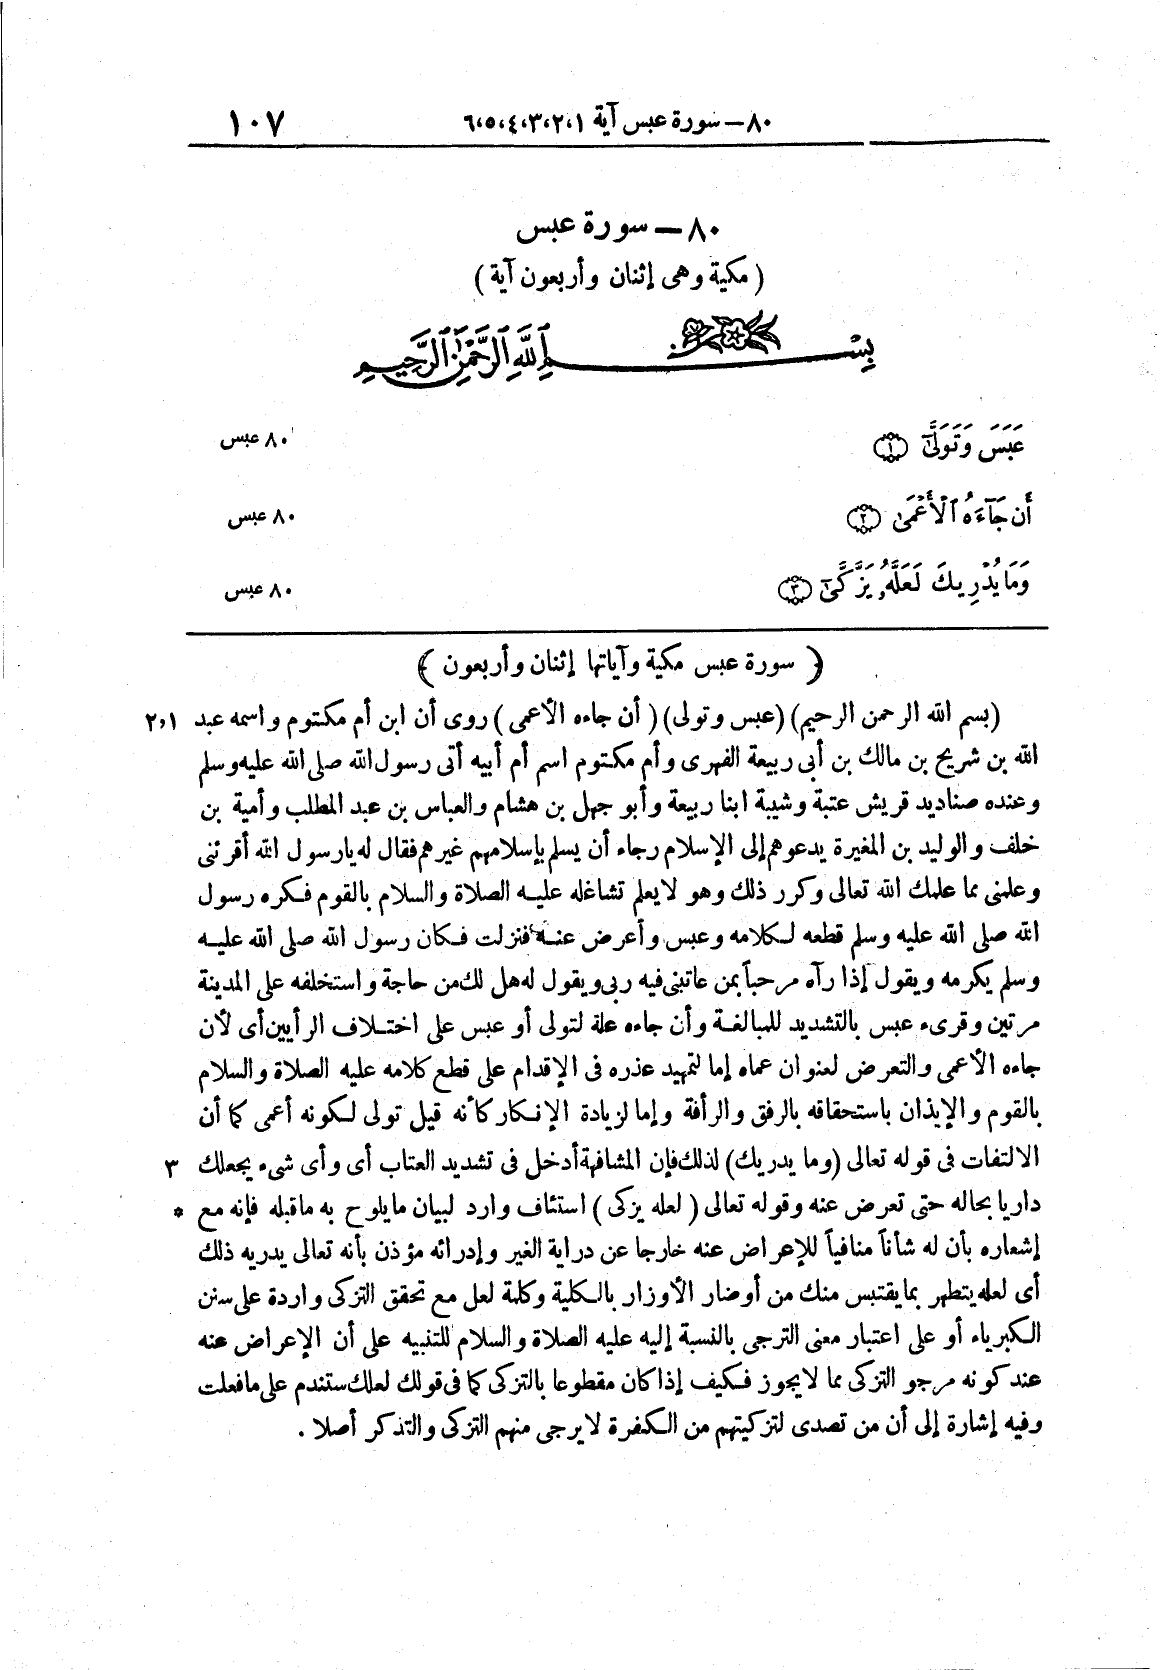 ٨٠ – سورة عبس آية ١،٢،٣،٤،٥،٦ ١٠٧
٨٠ – سورة عبس
( مكية وهى إثنان وأربعون آية )
بِسْمِ ٱللَّهِ ٱلرَّحْمَٰنِ ٱلرَّحِيمِ
عَبَسَ وَتَوَلَّىٰٓ ١ ٨٠ عبس
أَن جَآءَهُ ٱلْأَعْمَىٰ ٢ ٨٠ عبس
وَمَا يُدْرِيكَ لَعَلَّهُۥ يَزَّكَّىٰٓ ٣ ٨٠ عبس
﴿ سورة عبس مكية وآياتها إثنان وأربعون ﴾
(بسم الله الرحمن الرحيم) (عبس وتولى) ( أن جاءه الأعمى ) روى أن ابن أم مكتوم واسمه عبد ٢،١
الله بن شريح بن مالك بن أبى ربيعة الفهرى وأم مكتوم اسم أم أبيه أتى رسول الله صلى الله عليه وسلم
وعنده صناديد قريش عتبة وشيبة ابنا ربيعة وأبو جهل بن هشام والعباس بن عبد المطلب وأمية بن
خلف والوليد بن المغيرة يدعوهم إلى الإسلام رجاء أن يسلم بإسلامهم غيرهم فقال له يارسول الله أقرئنى
وعلمنى مما علمك الله تعالى وكرر ذلك وهو لا يعلم تشاغله عليه الصلاة والسلام بالقوم فكره رسول
الله صلى الله عليه وسلم قطعه لكلامه وعبس وأعرض عنه فنزلت فكان رسول الله صلى الله عليه
وسلم يكرمه ويقول إذا رآه مرحباً بمن عاتبنى فيه ربى ويقول له هل لك من حاجة واستخلفه على المدينة
مرتين وقرىء عبس بالتشديد للمبالغة وأن جاءه علة لتولى أو عبس على اختلاف الرأيين أى لأن
جاءه الأعمى والتعرض لعنوان عماه إما لتمهيد عذره فى الإقدام على قطع كلامه عليه الصلاة والسلام
بالقوم والإيذان باستحقاقه بالرفق والرأفة وإما لزيادة الإنكار كأنه قيل تولى لكونه أعمى كما أن
الالتفات فى قوله تعالى (وما يدريك) لذلك فإن المشافهة أدخل فى تشديد العتاب أى وأى شىء يجعلك ٣
داريا بحاله حتى تعرض عنه وقوله تعالى ( لعله يزكى ) استئناف وارد لبيان ما يلوح به ما قبله فإنه مع *
إشعاره بأن له شأناً منافياً للإعراض عنه خارجا عن دراية الغير وإدرائه مؤذن بأنه تعالى يدريه ذلك
أى لعله يتطهر بما يقتبس منك من أوضار الأوزار بالكلية وكلمة لعل مع تحقق التزكى واردة على سنن
الكبرياء أو على اعتبار معنى الترجى بالنسبة إليه عليه الصلاة والسلام للتنبيه على أن الإعراض عنه
عند كونه مرجو التزكى مما لا يجوز فكيف إذا كان مقطوعا بالتزكى كما فى قولك لعلك ستندم على ما فعلت
وفيه إشارة إلى أن من تصدى لتزكيتهم من الكفرة لا يرجى منهم التزكى والتذكر أصلا .